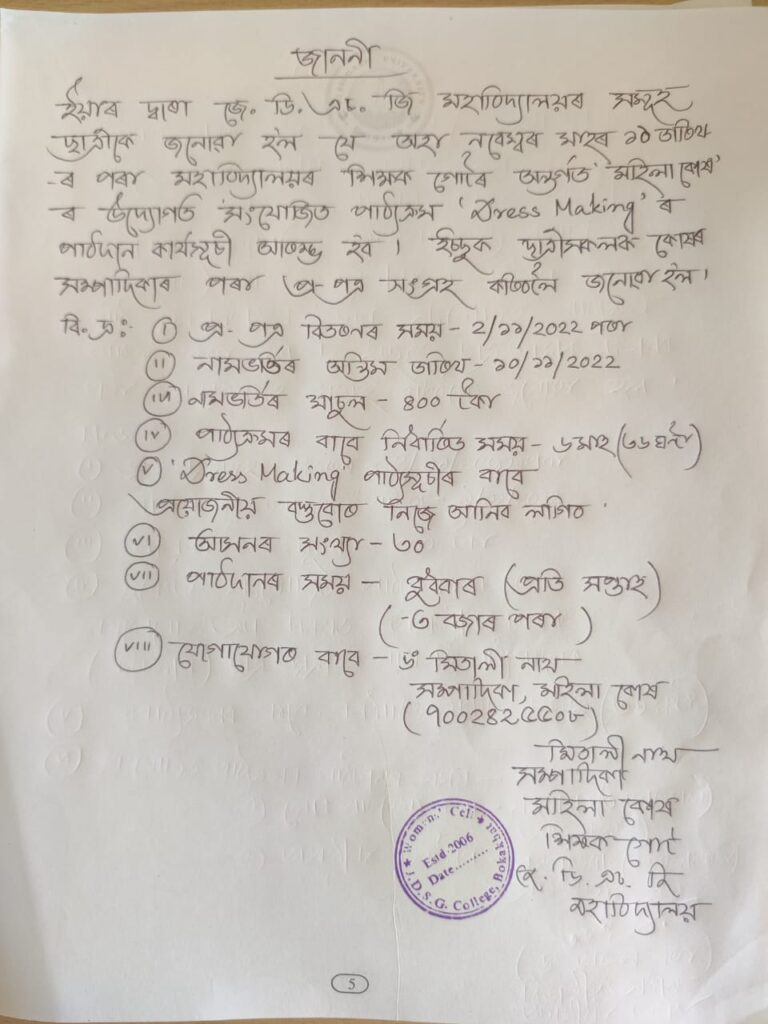 জাননী
ইয়াৰ দ্বাৰা জে. ডি. এচ. জি মহাবিদ্যালয়ৰ সমূহ
ছাত্ৰীকে জনোৱা হ'ল যে অহা নৱেম্বৰ মাহৰ ১০ তাৰিখ
-ৰ পৰা মহাবিদ্যালয়ৰ শিক্ষক গোটৰ অন্তৰ্গত 'মহিলা কোষ'
-ৰ উদ্যোগত সংযোজিত পাঠ্যক্ৰম 'Dress Making' ৰ
পাঠদান কাৰ্যসূচী আৰম্ভ হ'ব । ইচ্ছুক ছাত্ৰীসকলক কোষৰ
সম্পাদিকাৰ পৰা প্ৰ-পত্ৰ সংগ্ৰহ কৰিবলৈ জনোৱা হ'ল ।
বি. দ্ৰ:- (i) প্ৰ-পত্ৰ বিতৰণৰ সময় - 2/১১/2022 পৰা
(ii) নামভৰ্তিৰ অন্তিম তাৰিখ - ১০/১১/2022
(iii) নামভৰ্তিৰ মাচুল - ৪০০ টকা
(iv) পাঠ্যক্ৰমৰ বাবে নিৰ্ধাৰিত সময় - ৬ মাহ (৩৬ ঘন্টা)
(v) 'Dress Making' পাঠ্যসূচীৰ বাবে
প্ৰয়োজনীয় বস্তুবোৰ নিজে আনিব লাগিব
(vi) আসনৰ সংখ্যা - ৩০
(vii) পাঠদানৰ সময় - বুধবাৰ (প্ৰতি সপ্তাহ)
(-৩ বজাৰ পৰা)
(viii) যোগাযোগৰ বাবে - ড° মিতালী নাথ
সম্পাদিকা, মহিলা কোষ
মিতালী নাথ
সম্পাদিকা
মহিলা কোষ
শিক্ষক গোট
জে. ডি. এচ. জি
মহাবিদ্যালয়
Women's Cell
Estd 2006
Date.........
J.D.S.G. College, Bokakhat
5